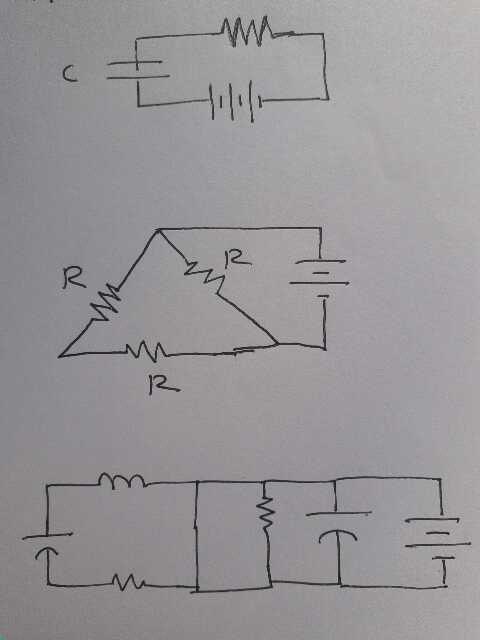 C
R
R
R